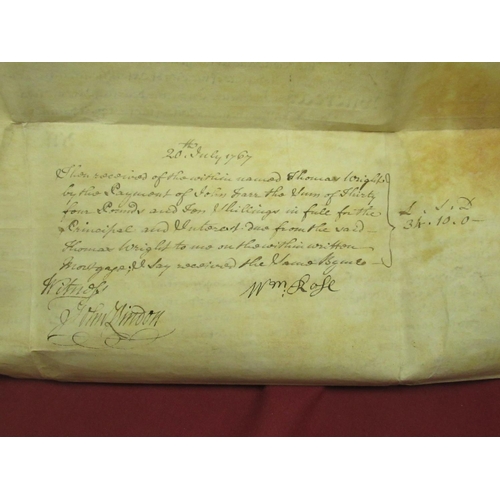 20th July 1767
Then received of the within named Thomas Wright
by the Payment of John Farr the Sum of Thirty
four Pounds and Ten Shillings in full for the
Principal and Interest due from the said
Thomas Wright to me on the within written
Mortgage, I say received the Same By me
£ : S : D
34 . 10 . 0
Witness
Wm. Rose
John Lindon